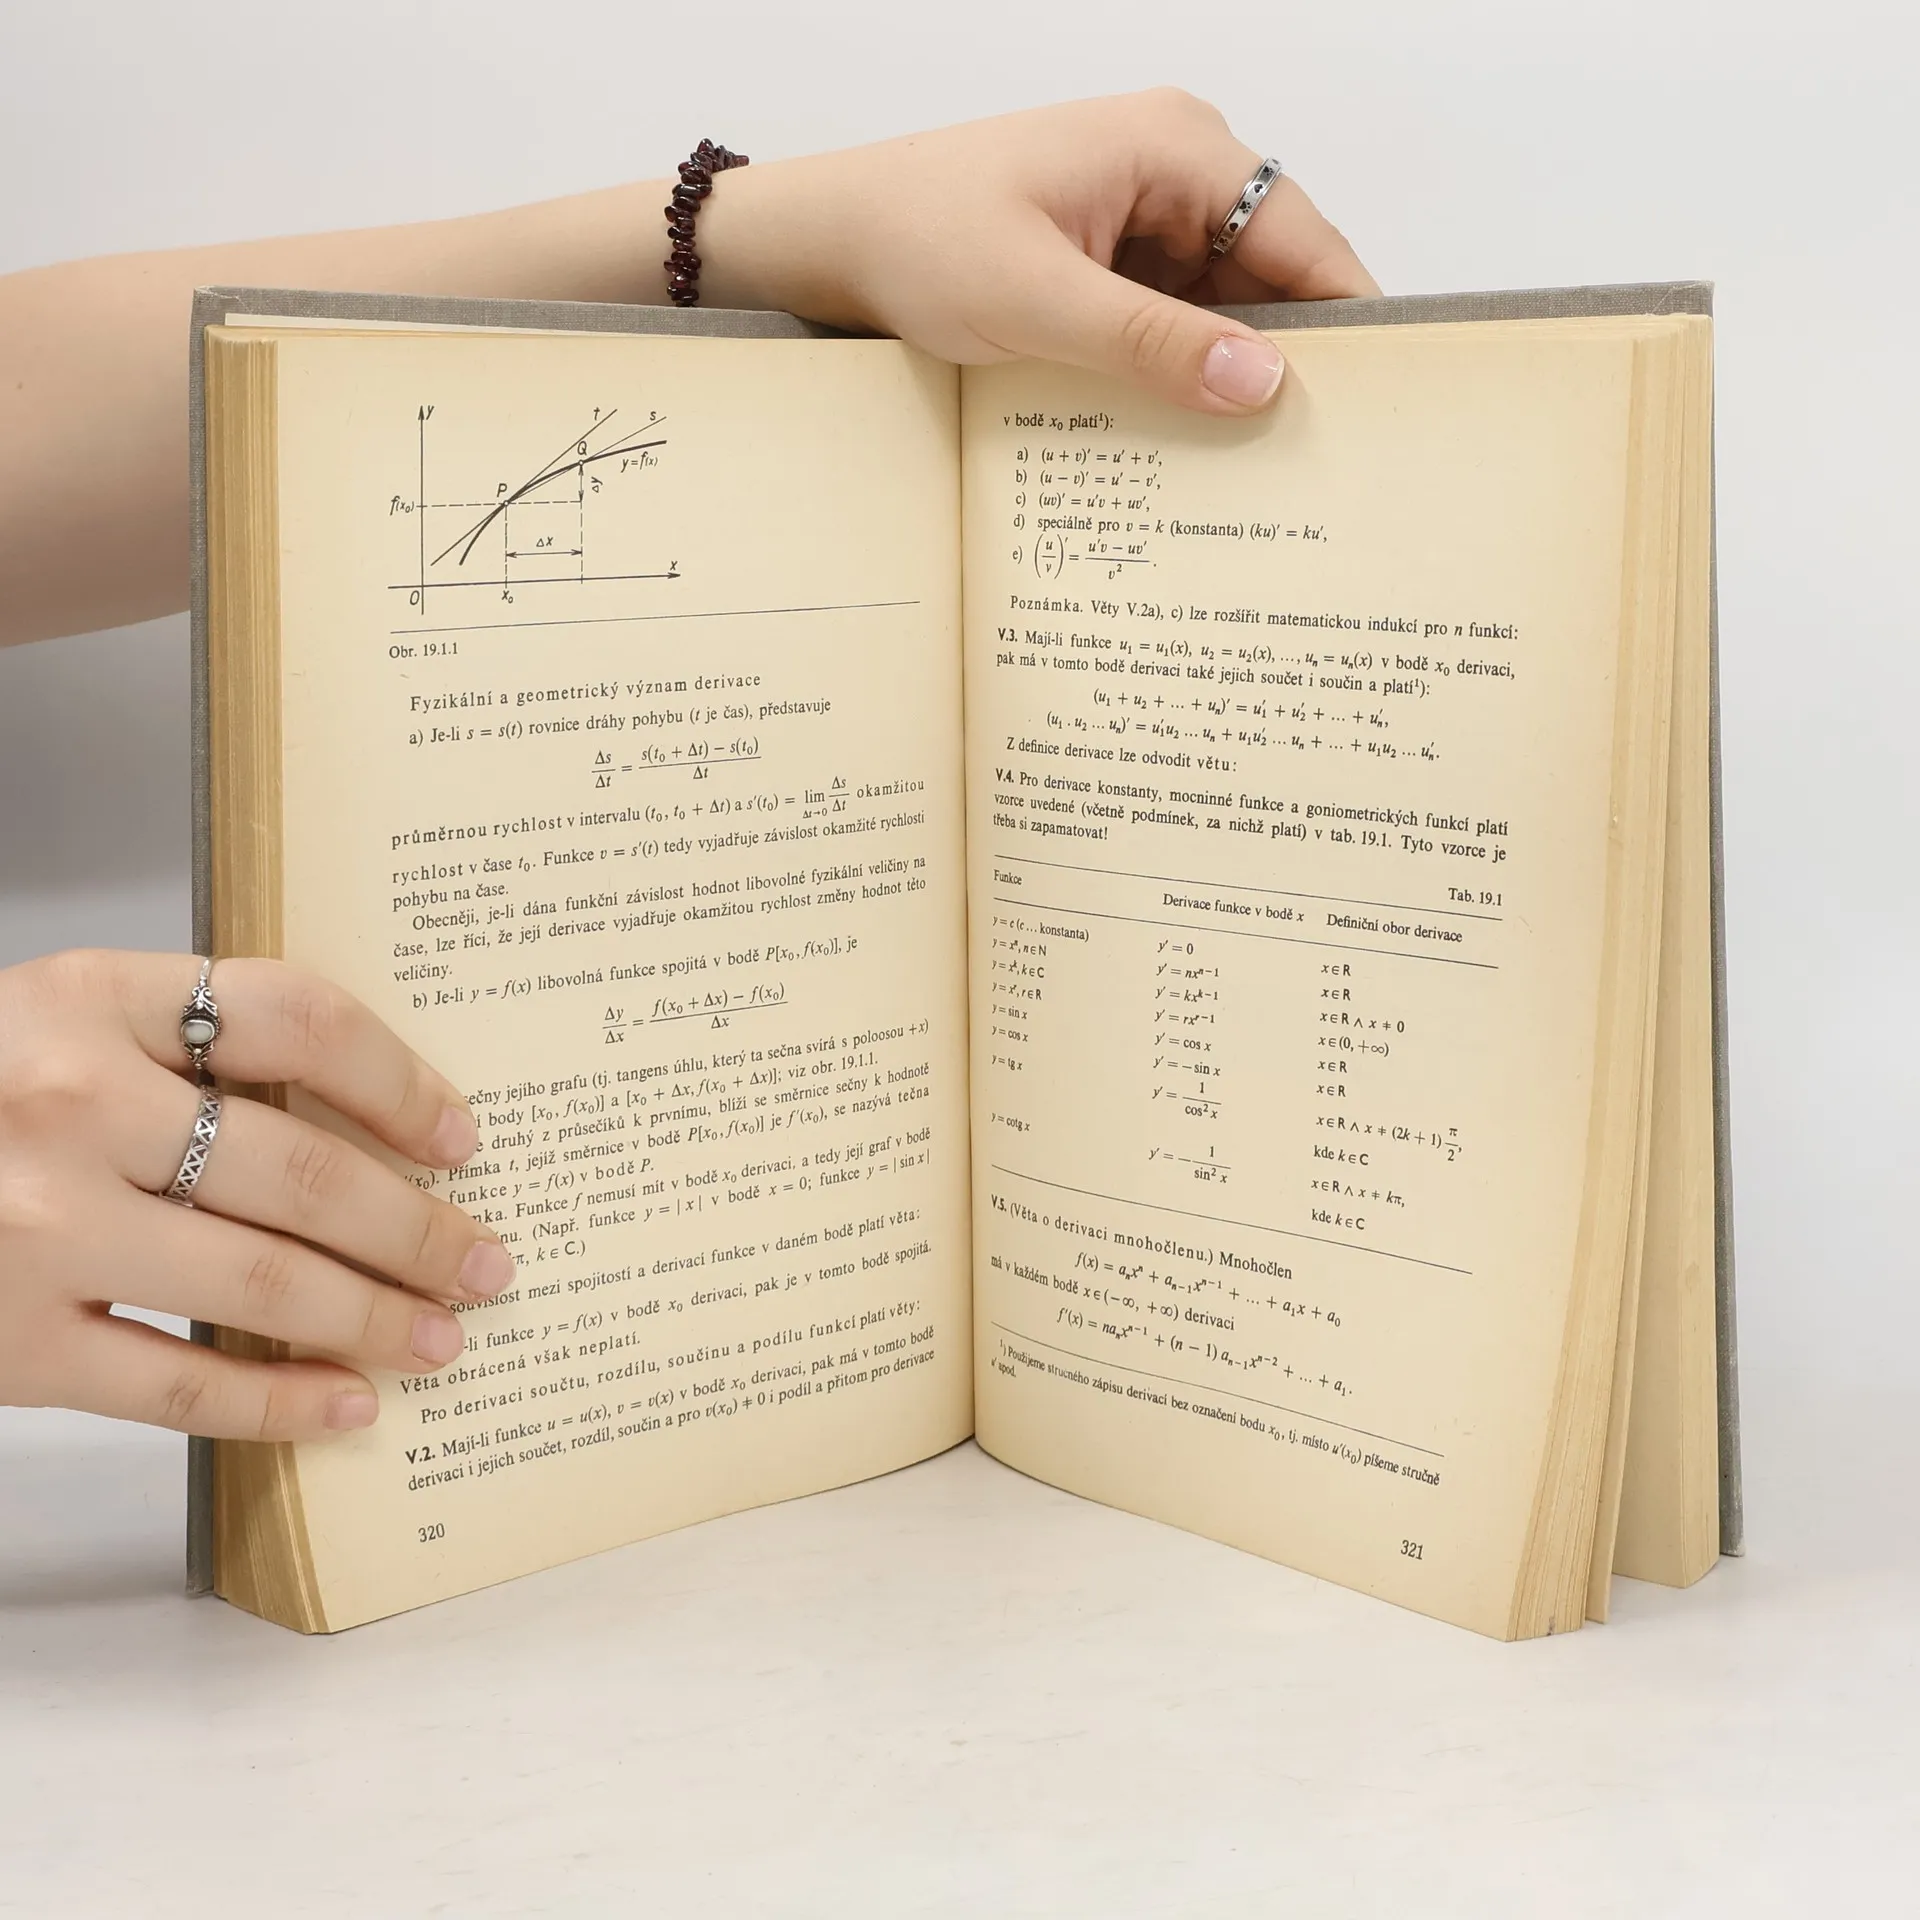 y
t
s
Q
y=f(x)
P
Δy
f(x₀)
Δx
x
O
x₀
Obr. 19.1.1
Fyzikální a geometrický význam derivace
a) Je-li s = s(t) rovnice dráhy pohybu (t je čas), představuje
Δs/Δt = (s(t₀ + Δt) − s(t₀))/Δt
průměrnou rychlost v intervalu (t₀, t₀ + Δt) a s′(t₀) = lim Δt→0 Δs/Δt okamžitou
rychlost v čase t₀. Funkce v = s′(t) tedy vyjadřuje závislost okamžité rychlosti
pohybu na čase.
Obecněji, je-li dána funkční závislost hodnot libovolné fyzikální veličiny na
čase, lze říci, že její derivace vyjadřuje okamžitou rychlost změny hodnot této
veličiny.
b) Je-li y = f(x) libovolná funkce spojitá v bodě P[x₀, f(x₀)], je
Δy/Δx = (f(x₀ + Δx) − f(x₀))/Δx
sečny jejího grafu (tj. tangens úhlu, který ta sečna svírá s poloosou +x)
body [x₀, f(x₀)] a [x₀ + Δx, f(x₀ + Δx)]; viz obr. 19.1.1.
druhý z průsečíků k prvnímu, blíží se směrnice sečny k hodnotě
(x₀). Přímka t, jejíž směrnice v bodě P[x₀, f(x₀)] je f′(x₀), se nazývá tečna
funkce y = f(x) v bodě P.
nka. Funkce f nemusí mít v bodě x₀ derivaci, a tedy její graf v bodě
nu. (Např. funkce y = |x| v bodě x = 0; funkce y = |sin x|
π, k ∈ C.)
souvislost mezi spojitostí a derivací funkce v daném bodě platí věta:
-li funkce y = f(x) v bodě x₀ derivaci, pak je v tomto bodě spojitá.
Věta obrácená však neplatí.
Pro derivaci součtu, rozdílu, součinu a podílu funkcí platí věty:
V.2. Mají-li funkce u = u(x), v = v(x) v bodě x₀ derivaci, pak má v tomto bodě
derivaci i jejich součet, rozdíl, součin a pro v(x₀) ≠ 0 i podíl a přitom pro derivace
320
v bodě x₀ platí¹):
a) (u + v)′ = u′ + v′,
b) (u − v)′ = u′ − v′,
c) (uv)′ = u′v + uv′,
d) speciálně pro v = k (konstanta) (ku)′ = ku′,
e) (u/v)′ = (u′v − uv′)/v².
Poznámka. Věty V.2a), c) lze rozšířit matematickou indukcí pro n funkcí:
V.3. Mají-li funkce u₁ = u₁(x), u₂ = u₂(x), ..., uₙ = uₙ(x) v bodě x₀ derivaci,
pak má v tomto bodě derivaci také jejich součet i součin a platí¹):
(u₁ + u₂ + ... + uₙ)′ = u₁′ + u₂′ + ... + uₙ′,
(u₁ . u₂ ... uₙ)′ = u₁′u₂ ... uₙ + u₁u₂′ ... uₙ + ... + u₁u₂ ... uₙ′.
Z definice derivace lze odvodit větu:
V.4. Pro derivace konstanty, mocninné funkce a goniometrických funkcí platí
vzorce uvedené (včetně podmínek, za nichž platí) v tab. 19.1. Tyto vzorce je
třeba si zapamatovat!
Tab. 19.1
Funkce Derivace funkce v bodě x Definiční obor derivace
y = c (c ... konstanta) y′ = 0 x ∈ R
y = xⁿ, n ∈ N y′ = nxⁿ⁻¹ x ∈ R
y = xᵏ, k ∈ C y′ = kxᵏ⁻¹ x ∈ R ∧ x ≠ 0
y = xʳ, r ∈ R y′ = rxʳ⁻¹ x ∈ (0, +∞)
y = sin x y′ = cos x x ∈ R
y = cos x y′ = −sin x x ∈ R
y = tg x y′ = 1/cos² x x ∈ R ∧ x ≠ (2k + 1) π/2,
kde k ∈ C
y = cotg x y′ = −1/sin² x x ∈ R ∧ x ≠ kπ,
kde k ∈ C
V.5. (Věta o derivaci mnohočlenu.) Mnohočlen
f(x) = aₙxⁿ + aₙ₋₁xⁿ⁻¹ + ... + a₁x + a₀
má v každém bodě x ∈ (−∞, +∞) derivaci
f′(x) = naₙxⁿ⁻¹ + (n − 1) aₙ₋₁xⁿ⁻² + ... + a₁.
¹) Použijeme stručného zápisu derivací bez označení bodu x₀, tj. místo u′(x₀) píšeme stručně
u′ apod.
321